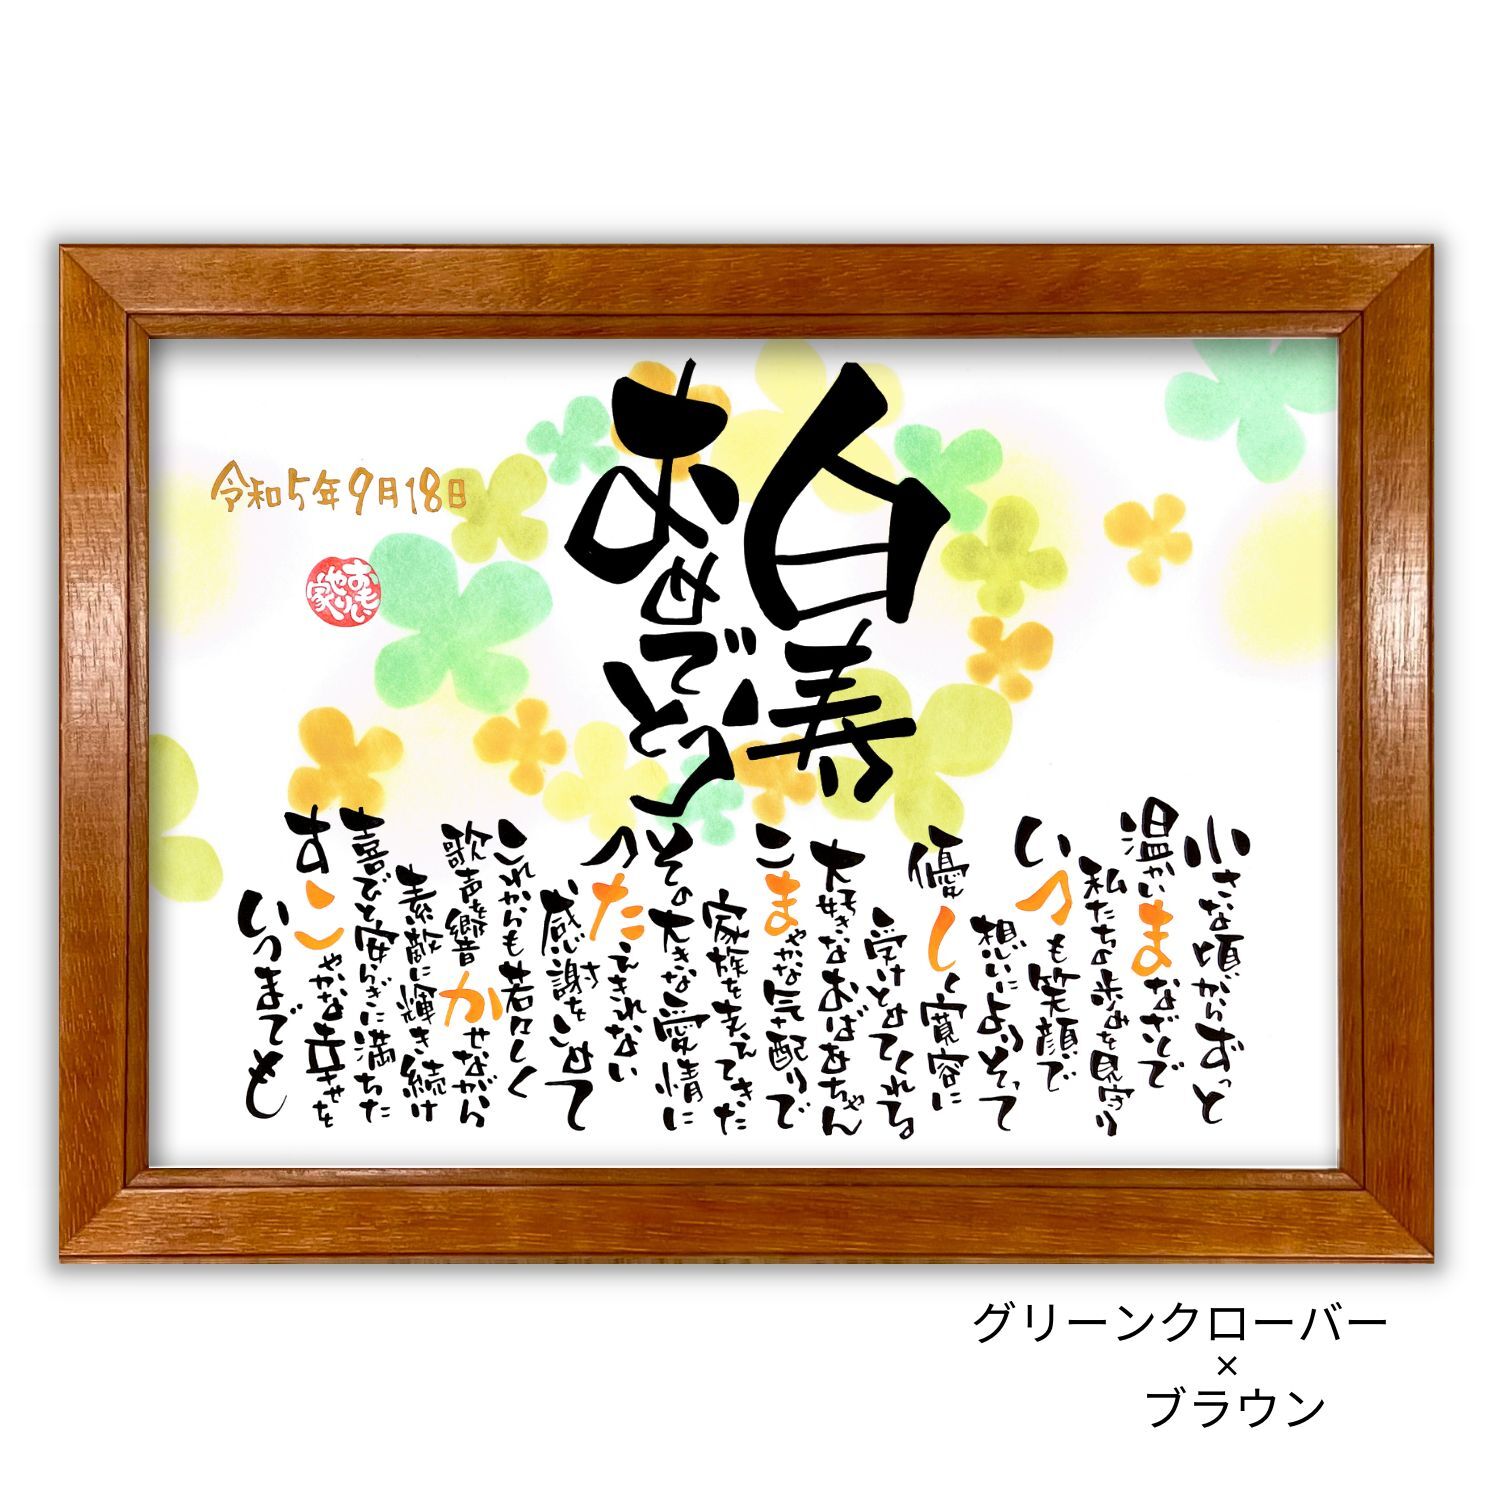 白寿
おめでとう
令和5年9月18日
おもいやり家
小さな頃からずっと
温かいまなざしで
私たちの歩みを見守り
いつも笑顔で
想いによりそって
優しく寛容に
受けとめてくれる
大好きなおばあちゃん
こまやかな気配りで
家族を支えてきた
その大きな愛情に
つたえきれない
感謝をこめて
これからも若々しく
歌声を響かせながら
素敵に輝き続け
喜びと安らぎに満ちた
すこやかな幸せを
いつまでも
グリーンクローバー
×
ブラウン